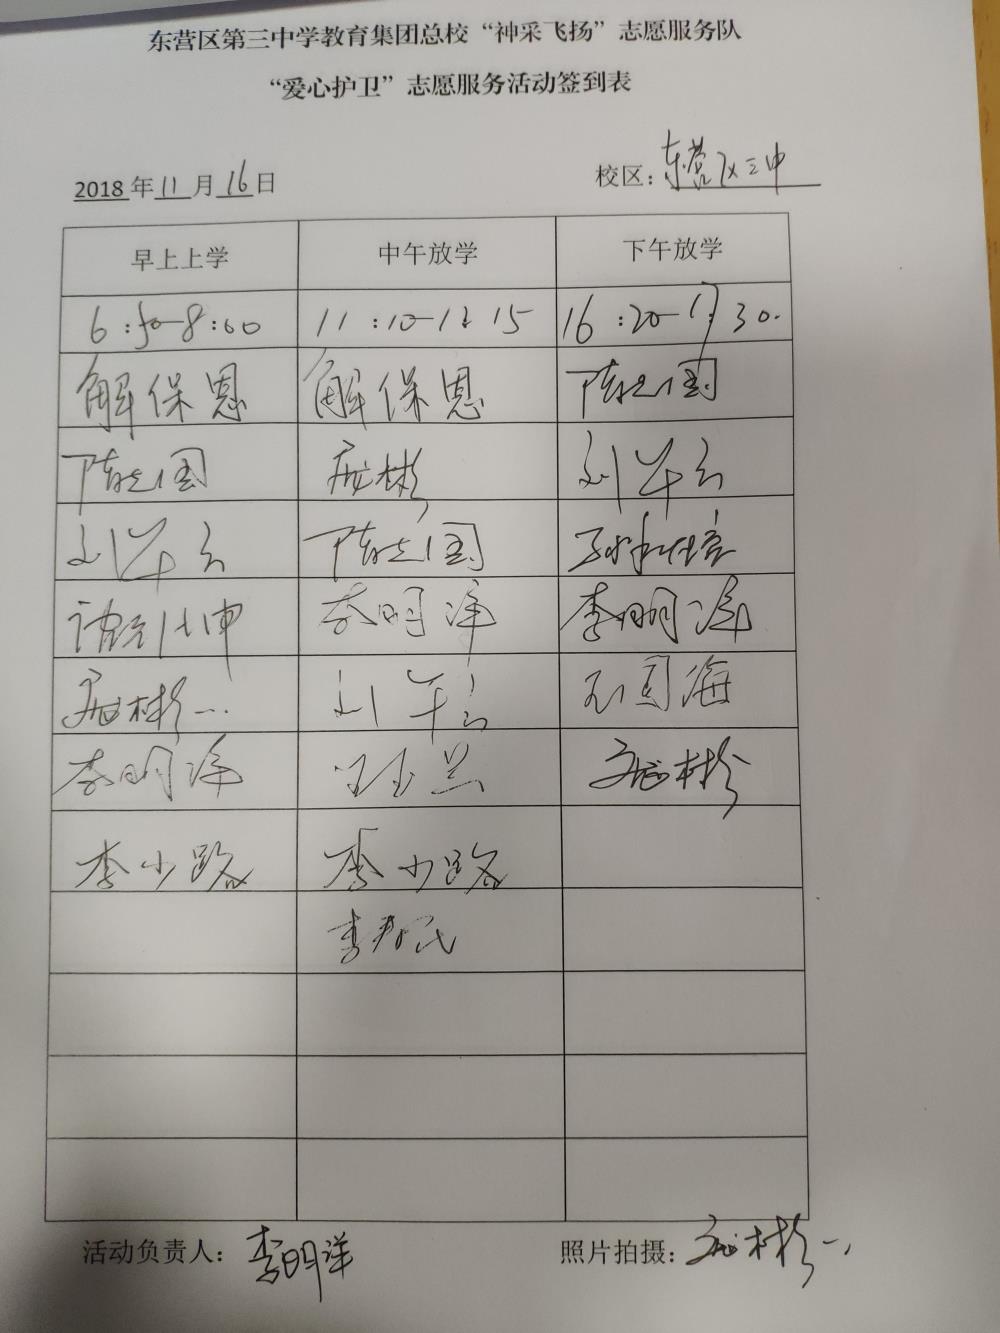 东营区第三中学教育集团总校“神采飞扬”志愿服务队
“爱心护卫”志愿服务活动签到表
2018年11月16日 校区：东营区三中
早上上学 中午放学 下午放学
6:50-8:00 11:10-12:15 16:20-17:30.
解保恩 解保恩 陈志国
陈志国 彬 刘军
刘军 陈志国
李明洋 李明洋
彬 刘军 国海
李明洋 彬
李少路 李少路
李春民
活动负责人：李明洋 照片拍摄：彬